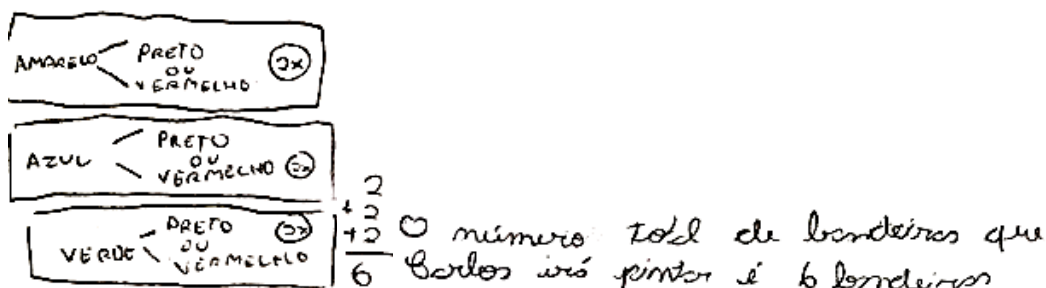 AMARELO PRETO
OU
VERMELHO 2x
AZUL PRETO
OU
VERMELHO 2x
VERDE PRETO
OU
VERMELHO 2x
2
+2
+2
6
O número total de bandeiras que
Carlos irá pintar é 6 bandeiras